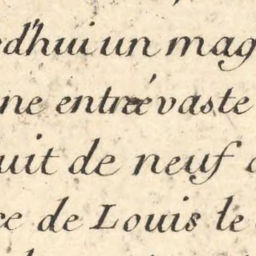 ed'hui un mag
ne entrée vaste
uit de neuf
ce de Louis le